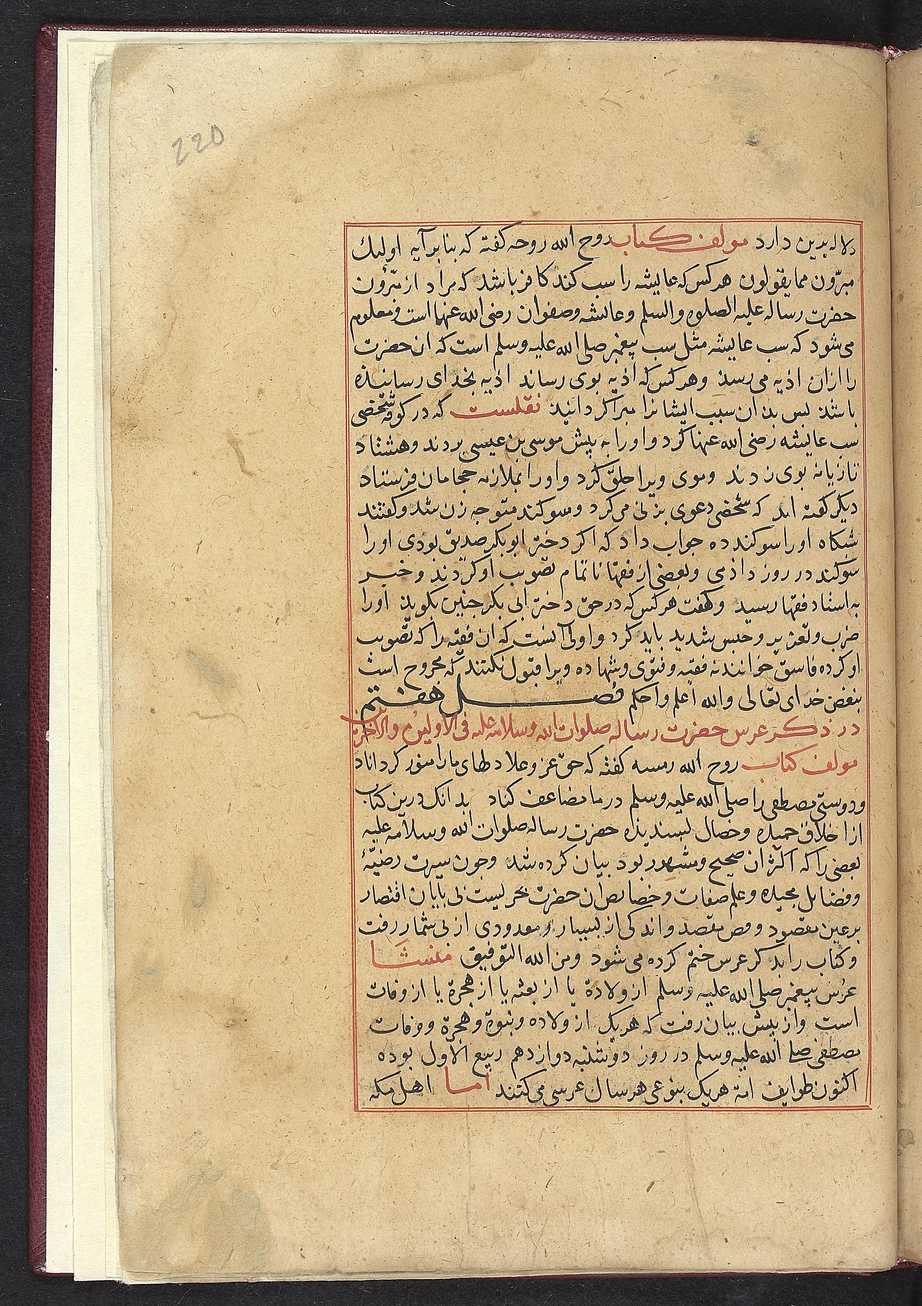 220
دلاله بدین دارد مولف کتاب روح الله روحه کفته که بنابر آیه اولیک
مبرّون مما یقولون هرکس که عایشه را سب کند کافر باشد که مراد از مبرّون
حضرت رساله علیه الصلوه والسلم وعایشه وصفوان رضی الله عنهما است ومعلوم
می شود که سب عایشه مثل سب پیغمبر صلی الله علیه وسلم است که ان حضرت
را ازان اذیه می رسد وهرکس که اذیه بوی رساند اذیه بخدای رسانیده
باشد پس بدان سبب ایشانرا مبرا کردانید نقلست که در کوفه شخصی
سب عایشه رضی الله عنها کرد واورا به پیش موسی بن عیسی بردند وهشتاد
تازیانه بوی زدند وموی ویرا حلق کرد واورا بملازمه حجامان فرستاد
دیکر کفته اند که شخصی دعوی بزنی می کرد وسوکند متوجه زن شد وکفتند
شبکاه اورا سوکند ده جواب داد که اکر دختر ابوبکر صدیق بودی اورا
سوکند در روز دادمی وبعضی از فقها ناتمام تصویب او کردند وخبر
به استاد فقها رسید وکفت هرکس که در حق دختر ابی بکر چنین بکوید اورا
ضرب وتعزیر وحبس شدید باید کرد واولی آنست که ان فقیه را که تصویب
او کرده فاسق خوانند نه فقیه وفتوی وشهاده ویرا قبول نکنند که مجروح است
ببغض خدای تعالی والله اعلم واحکم فصل هفتم
در ذکر عرس حضرت رساله صلوات الله وسلامه علیه فی الاولین والاخرین
مولف کتاب روح الله رمسه کفته که حق عز وعلا دلهای مارا منور کرداناد
ودوستی مصطفی را صلی الله علیه وسلم در ما مضاعف کناد بدانک درین کتاب
از اخلاق حمیده وخصال پسندیده حضرت رساله صلوات الله وسلامه علیه
بعضی را که اکثر ان صحیح ومشهور بود بیان کرده شد وچون سیرت رضیّهٔ
وفضایل مجیده وعلم صفات وخصایص آن حضرت بحریست بی پایان اقتصار
برعین مقصود وفص مقصد واندکی از بسیار ومعدودی از بی شمار رفت
وکتاب را بذکر عرس ختم کرده می شود ومن الله التوفیق منشا
عرس پیغمبر صلی الله علیه وسلم از ولادة یا از بعثه یا از هجرة یا از وفات
است واز پیش بیان رفت که هریک از ولاده ونبوة وهجرة ووفات
مصطفی صلی الله علیه وسلم در روز دوشنبه دوازدهم ربیع الاول بوده
اکنون طوایف امة هریک بنوعی هرسال عرسی می کنند اما اهل مکه